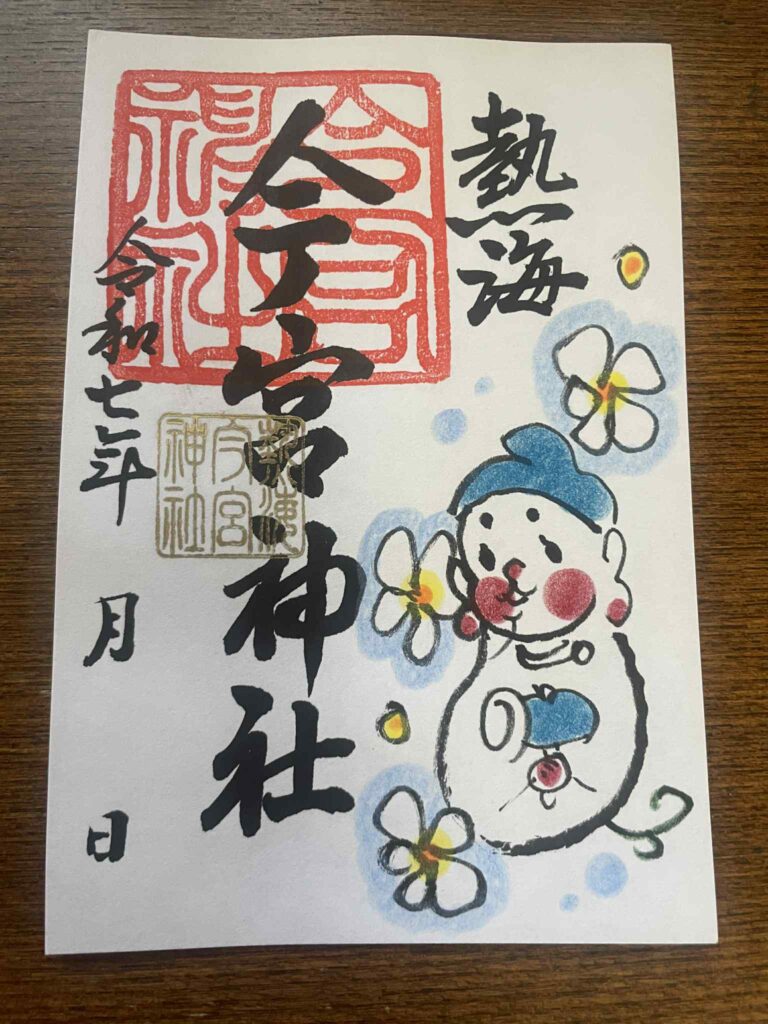 熱海
今宮神社
令和七年 月 日
今宮
神社
熱海
今宮
神社